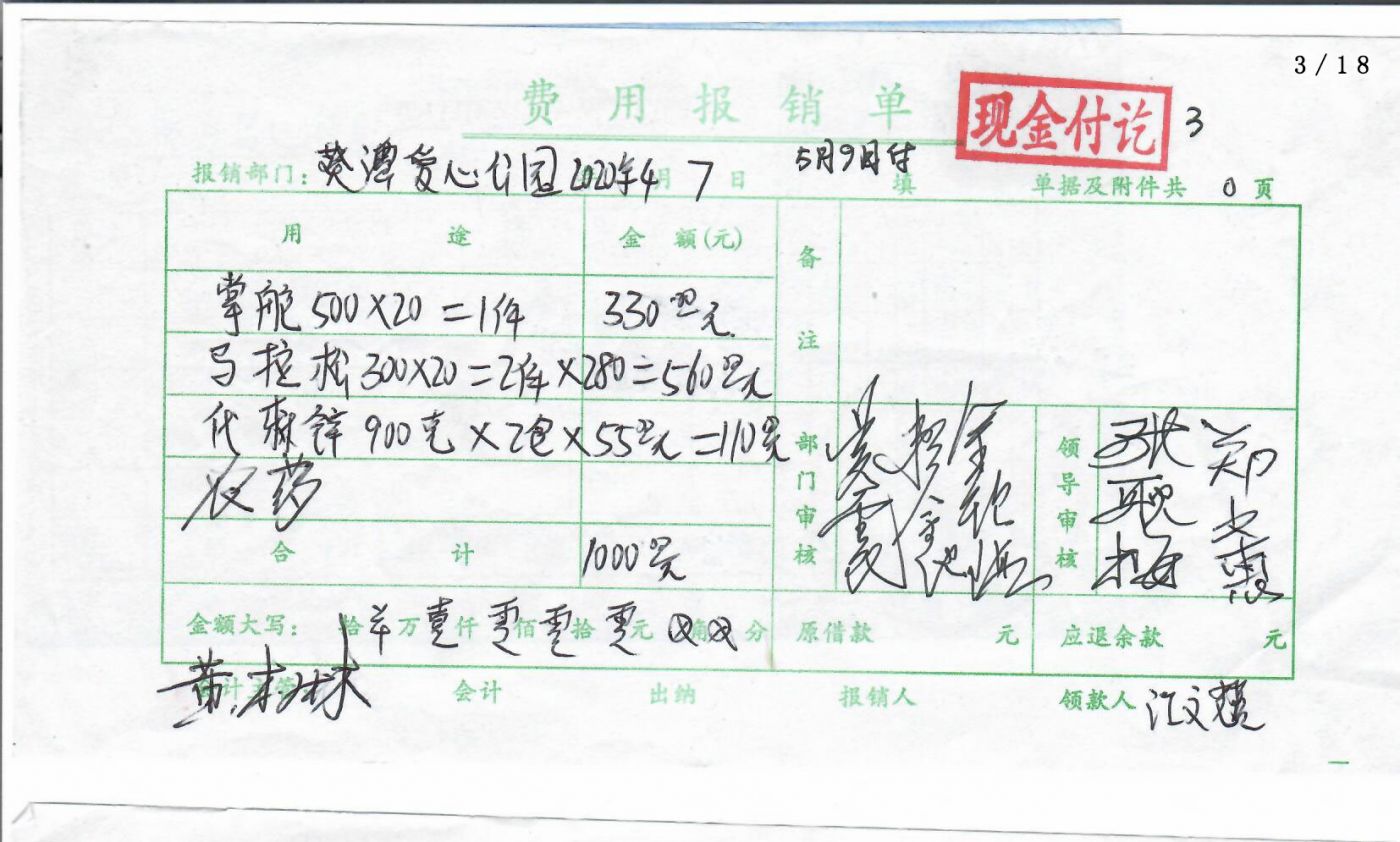 3/18
费用报销单
现金付讫 3
报销部门：葵潭爱心公园 2020年4月7日 5月9日付 填 单据及附件共 0 页
用途 金额(元) 备注
掌舵 500×20=1件 330.00元
马拉松 300×20=2件×280=560.00元
代森锌 900克×2包×55.00元=110.00元
农药
部门审核 领导审核
合计 1000.00元
金额大写： 拾 万 壹仟 零佰 零拾 零元 角 分 原借款 元 应退余款 元
会计 出纳 报销人 领款人